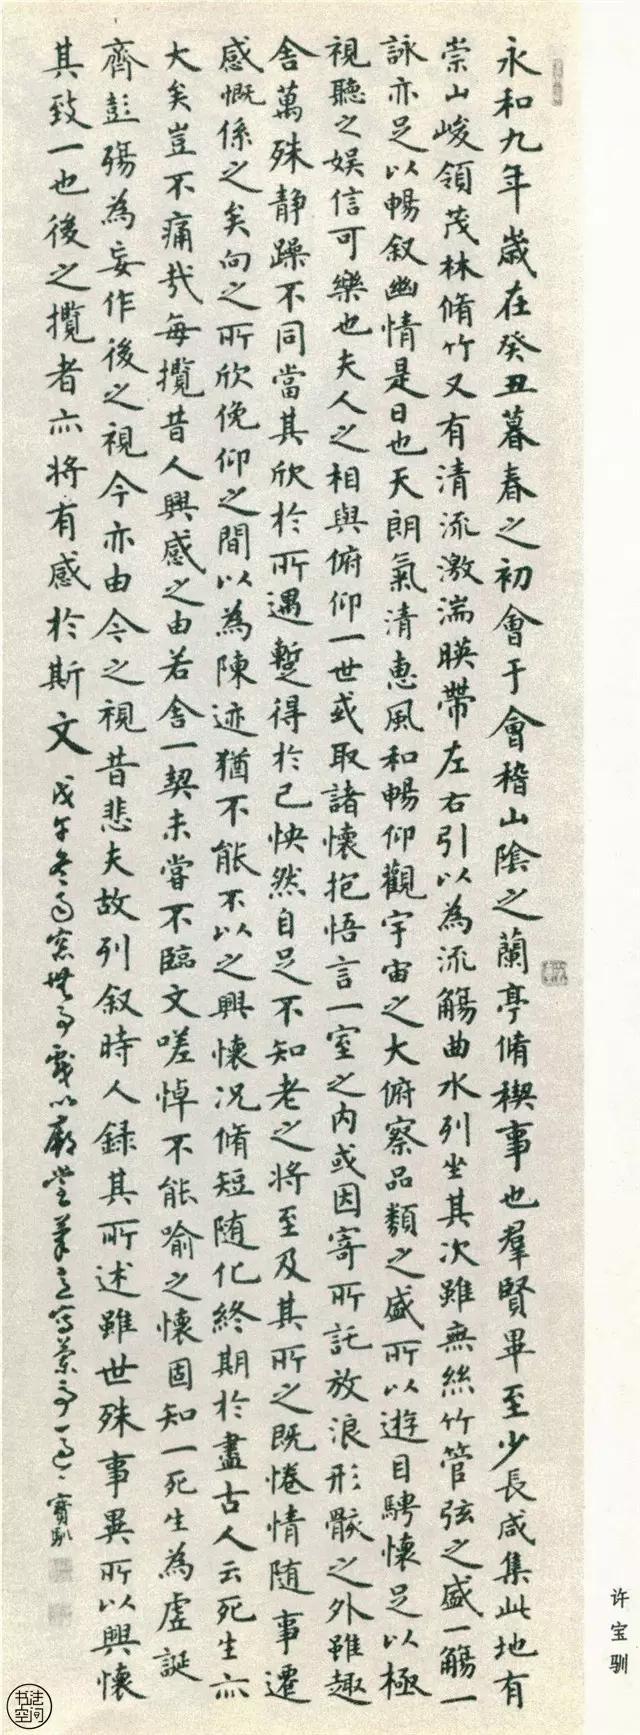 永和九年歲在癸丑暮春之初會于會稽山陰之蘭亭脩稧事也羣賢畢至少長咸集此地有
崇山峻領茂林脩竹又有清流激湍暎帶左右引以為流觴曲水列坐其次雖無絲竹管弦之盛一觴一
詠亦足以暢叙幽情是日也天朗氣清惠風和暢仰觀宇宙之大俯察品類之盛所以遊目騁懷足以極
視聽之娱信可樂也夫人之相與俯仰一世或取諸懷抱悟言一室之内或因寄所託放浪形骸之外雖趣
舍萬殊静躁不同當其欣於所遇蹔得於己怏然自足不知老之将至及其所之既惓情随事遷
感慨係之矣向之所欣俛仰之間以為陳迹猶不能不以之興懷况脩短随化終期於盡古人云死生亦
大矣豈不痛哉每攬昔人興感之由若合一契未嘗不臨文嗟悼不能喻之懷固知一死生為虛誕
齊彭殤為妄作後之視今亦由今之視昔悲夫故列叙時人録其所述雖世殊事異所以興懷
其致一也後之攬者亦将有感於斯文
戊午冬雨窓無事戲以廟堂筆意寫蘭亭一過 寶馴
许宝驯
书法空间